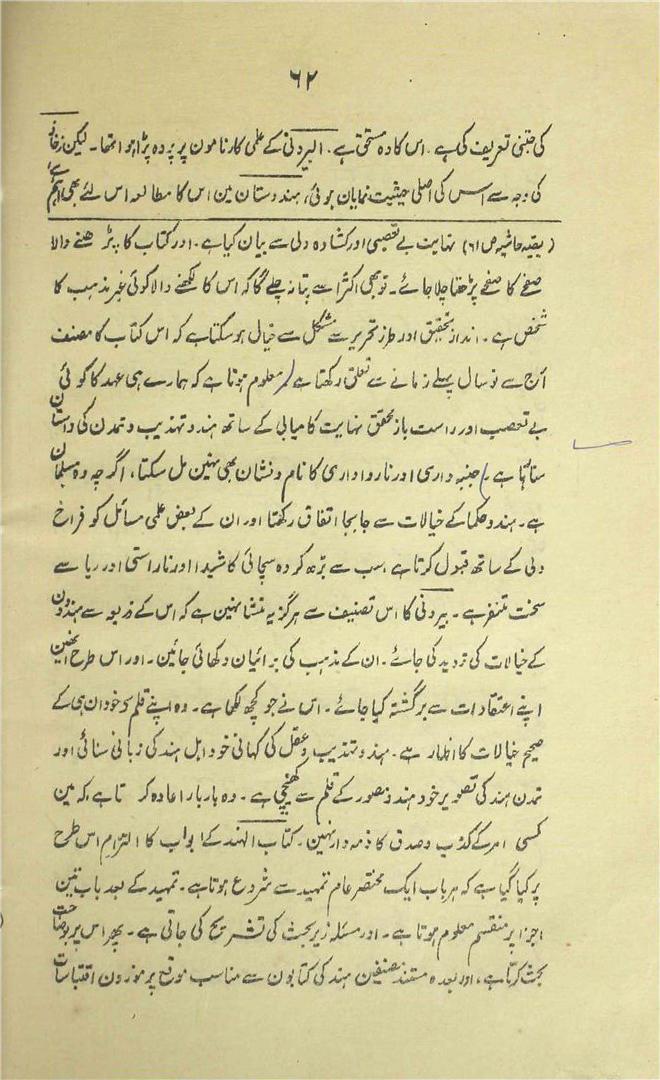 ٦٢
کی جتنی تعریف کی ہے۔ اس کا وہ مستحق ہے۔ البیرونی کے علمی کارنامون پر پردہ پڑا ہوا تھا۔ لیکن زخاؤ
کی وجہ سے اس کی اصلی حیثیت نمایان ہوئی، ہندوستان مین اس کا مطالعہ اس لئے بھی اہم ہے
(بقیہ حاشیہ ص ٦١) نہایت بے تعصبی اور کشادہ دلی سے بیان کیا ہے۔ اور کتاب کا پڑھنے والا
صفحے کا صفحے پڑھتا چلا جائے۔ تو بھی اکثر اسے پتا نہ چلے گا کہ اس کا لکھنے والا کوئی غیر مذہب کا
شخص ہے۔ انداز تحقیق اور طرز تحریر سے مشکل سے خیال ہو سکتا ہے کہ اس کتاب کا مصنف
آج سے نو سال پہلے زمانے سے تعلق رکھتا ہے (معلوم ہوتا ہے کہ ہمارے ہی عہد کا کوئی
بے تعصب اور راست باز محقق نہایت کامیابی کے ساتھ ہندو تہذیب و تمدن کی داستان
سناتا ہے) جنبہ داری اور نارواداری کا نام و نشان بھی نہین مل سکتا، اگرچہ وہ مسلمان
ہے۔ ہندو حکما کے خیالات سے جابجا اتفاق رکھتا اور ان کے بعض علمی مسائل کو فراخ
دلی کے ساتھ قبول کرتا ہے، سب سے بڑھ کر وہ سچائی کا شیدا اور ناراستی اور ریا سے
سخت متنفر ہے۔ بیرونی کا اس تصنیف سے ہرگز یہ منشا نہین ہے کہ اس کے ذریعہ سے ہندوون
کے خیالات کی تردید کی جائے۔ ان کے مذہب کی برائیان دکھائی جائین۔ اور اس طرح انھین
اپنے اعتقادات سے برگشتہ کیا جائے۔ اس نے جو کچھ لکھا ہے۔ وہ اپنے قلم سے خود ان ہی کے
صحیح خیالات کا اظہار ہے۔ ہندو تہذیب و عقل کی کہانی خود اہل ہند کی زبانی سنائی اور
تمدن ہند کی تصویر خود ہندو مصور کے قلم سے کھنچی ہے۔ وہ بار بار اعادہ کرتا ہے، کہ مین
کسی امر کے کذب و صدق کا ذمہ دار نہین۔ کتاب الہند کے ابواب کا التزام اس طرح
پر کیا گیا ہے کہ ہر باب ایک مختصر عام تمہید سے شروع ہوتا ہے۔ تمہید کے بعد باب تین
اجزا پر منقسم معلوم ہوتا ہے۔ اور مسئلہ زیر بحث کی تشریح کی جاتی ہے۔ پھر اس پر بوضاحت
بحث کرتا ہے، اور بعدہ مستند مصنفین ہند کی کتابون سے مناسب موقع پر موزون اقتباسات